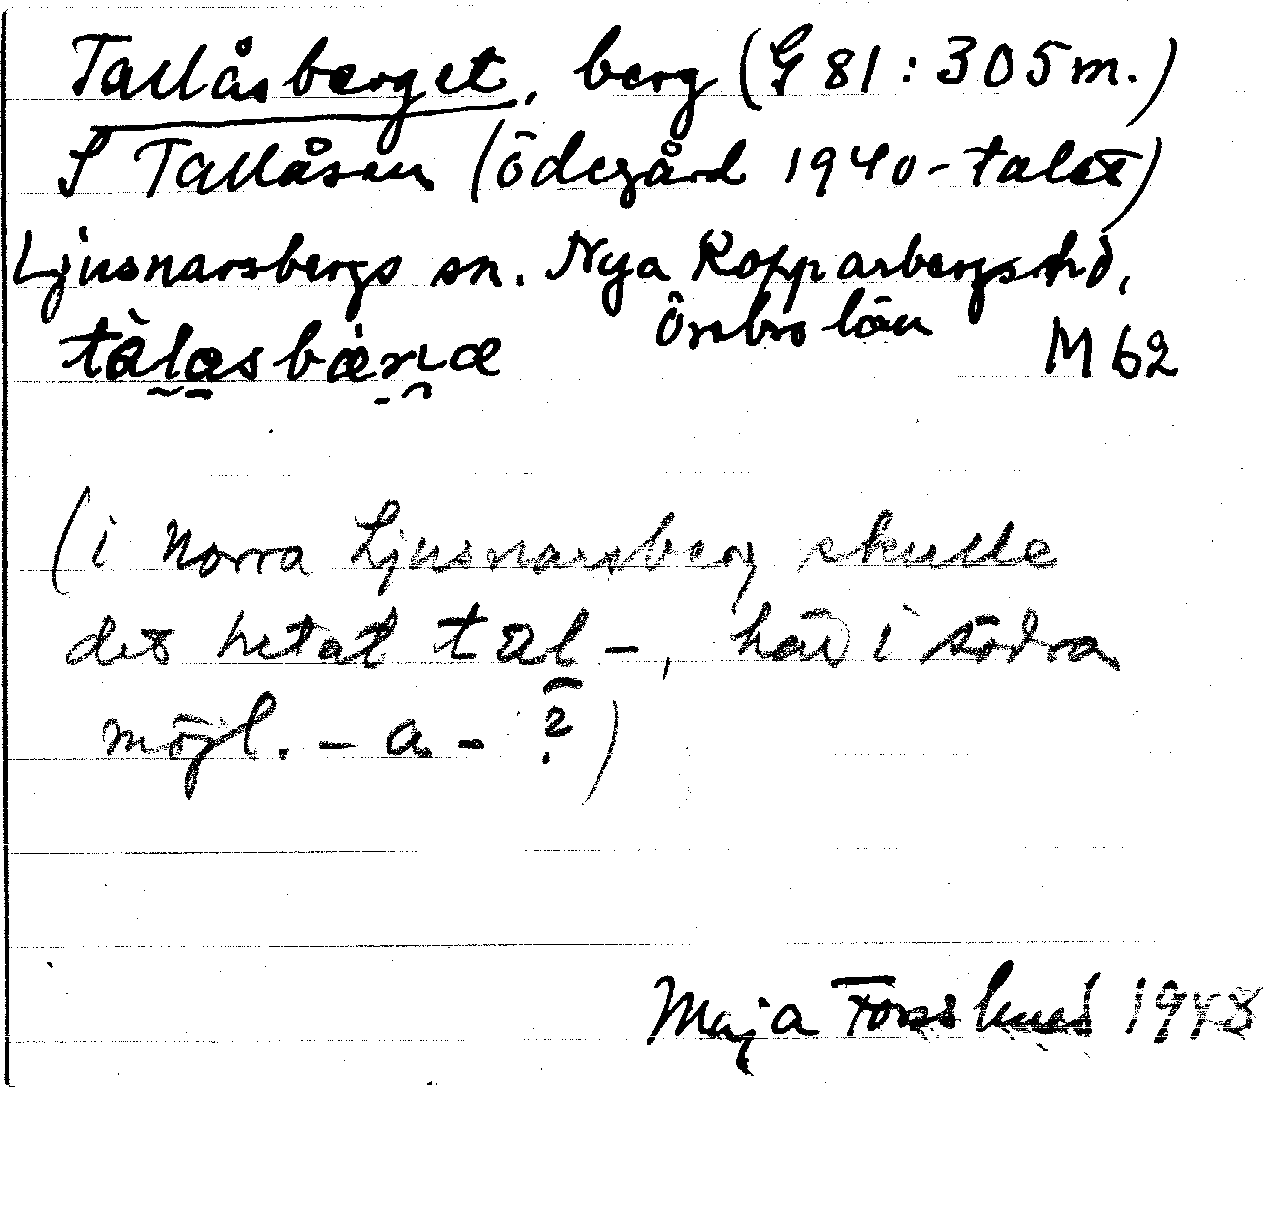 Tallåsberget, berg (G 81:305 m.)
S Tallåsen (ödegård 1940-talet)
Ljusnarsbergs sn. Nya Kopparbergs hd,
Örebro län M 62
tàlasbærıæ
(i norra Ljusnarsberg skulle
det hetat tal-, här i södra
möjl. - a - ?)
Maja 1948